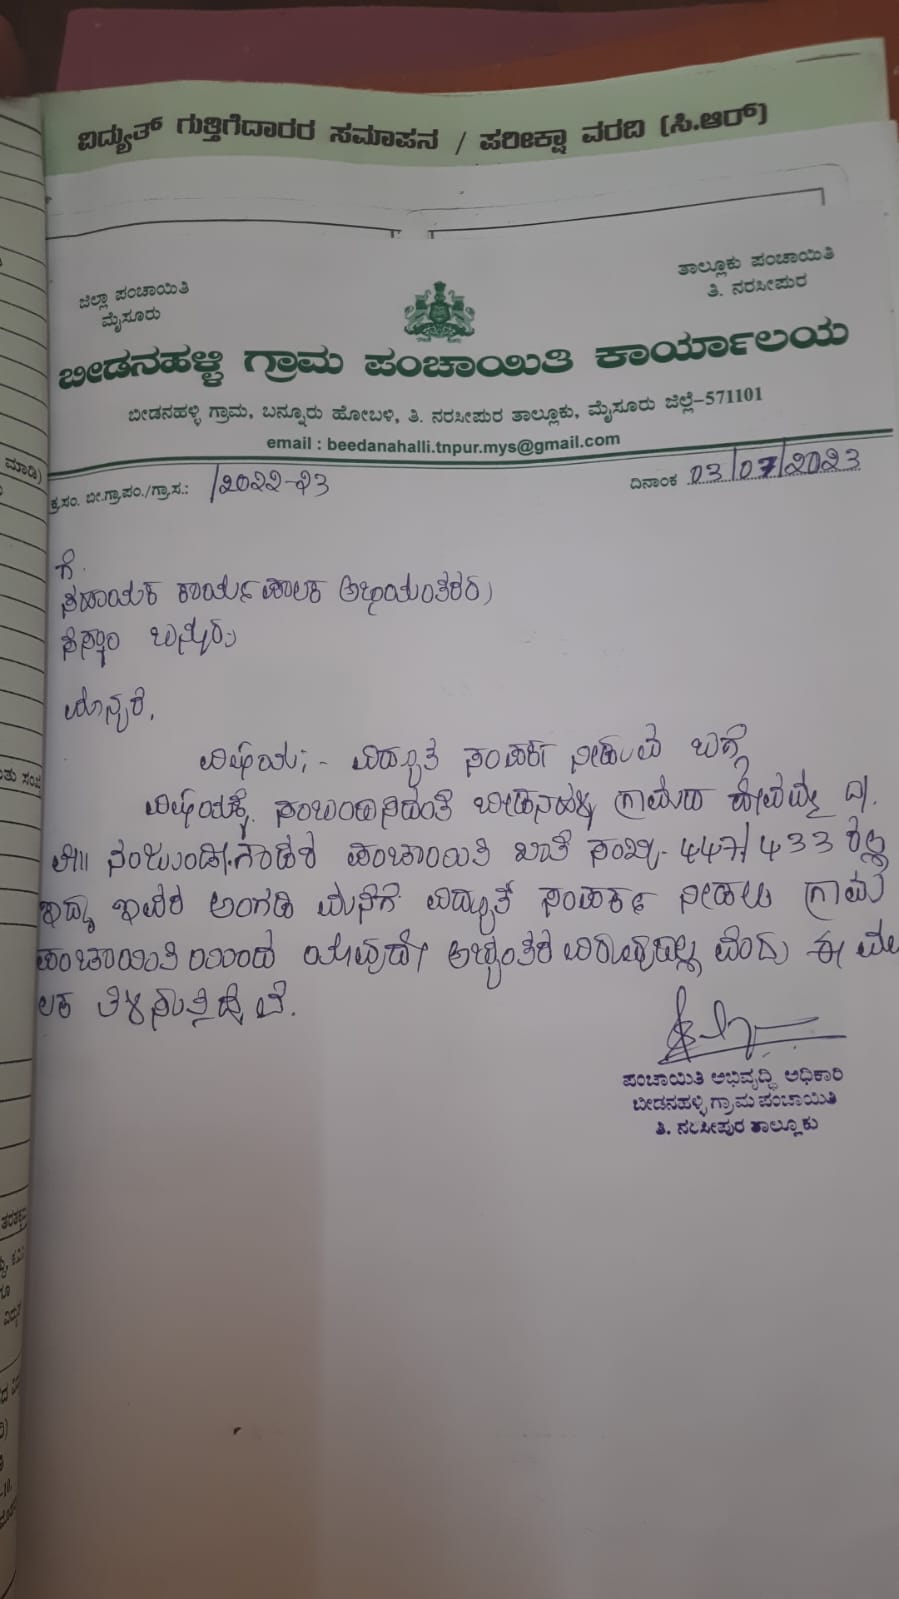 ವಿದ್ಯುತ್ ಗುತ್ತಿಗೆದಾರರ ಸಮಾಪನ / ಪರೀಕ್ಷಾ ವರದಿ (ಸಿ.ಆರ್)
ಜಿಲ್ಲಾ ಪಂಚಾಯಿತಿ
ಮೈಸೂರು
ತಾಲ್ಲೂಕು ಪಂಚಾಯಿತಿ
ತಿ. ನರಸೀಪುರ
ಬೀಡನಹಳ್ಳಿ ಗ್ರಾಮ ಪಂಚಾಯಿತಿ ಕಾರ್ಯಾಲಯ
ಬೀಡನಹಳ್ಳಿ ಗ್ರಾಮ, ಬನ್ನೂರು ಹೋಬಳಿ, ತಿ. ನರಸೀಪುರ ತಾಲ್ಲೂಕು, ಮೈಸೂರು ಜಿಲ್ಲೆ-571101
email : beedanahalli.tnpur.mys@gmail.com
ಕ್ರ.ಸಂ. ಬೀ.ಗ್ರಾ.ಪಂ./ಗ್ರಾ.ಸ.: /2022-23 ದಿನಾಂಕ 03/07/2023
ಗೆ.
ಸಹಾಯಕ ಕಾರ್ಯಪಾಲಕ ಅಭಿಯಂತರರು
ಸೆಸ್ಕಾಂ ಬನ್ನೂರು
ಮಾನ್ಯರೆ,
ವಿಷಯ:- ವಿದ್ಯುತ್ ಸಂಪರ್ಕ ನೀಡುವ ಬಗ್ಗೆ
ವಿಷಯಕ್ಕೆ ಸಂಬಂಧಿಸಿದಂತೆ ಬೀಡನಹಳ್ಳಿ ಗ್ರಾಮದ
ಪಂಚಾಯಿತಿ ಖಾತೆ ಸಂಖ್ಯೆ- 447/433 ರಲ್ಲಿ
ಇದ್ದು ಇವರ ಅಂಗಡಿ ಮನೆಗೆ ವಿದ್ಯುತ್ ಸಂಪರ್ಕ ನೀಡಲು ಗ್ರಾಮ
ಪಂಚಾಯಿತಿ ಯಿಂದ ಯಾವುದೇ ಅಭ್ಯಂತರ ವಿರುವುದಿಲ್ಲ ವೆಂದು ಈ ಮೂ
ಲಕ ತಿಳಿಸುತ್ತಿದ್ದೇವೆ.
ಪಂಚಾಯಿತಿ ಅಭಿವೃದ್ಧಿ ಅಧಿಕಾರಿ
ಬೀಡನಹಳ್ಳಿ ಗ್ರಾಮ ಪಂಚಾಯಿತಿ
ತಿ. ನರಸೀಪುರ ತಾಲ್ಲೂಕು